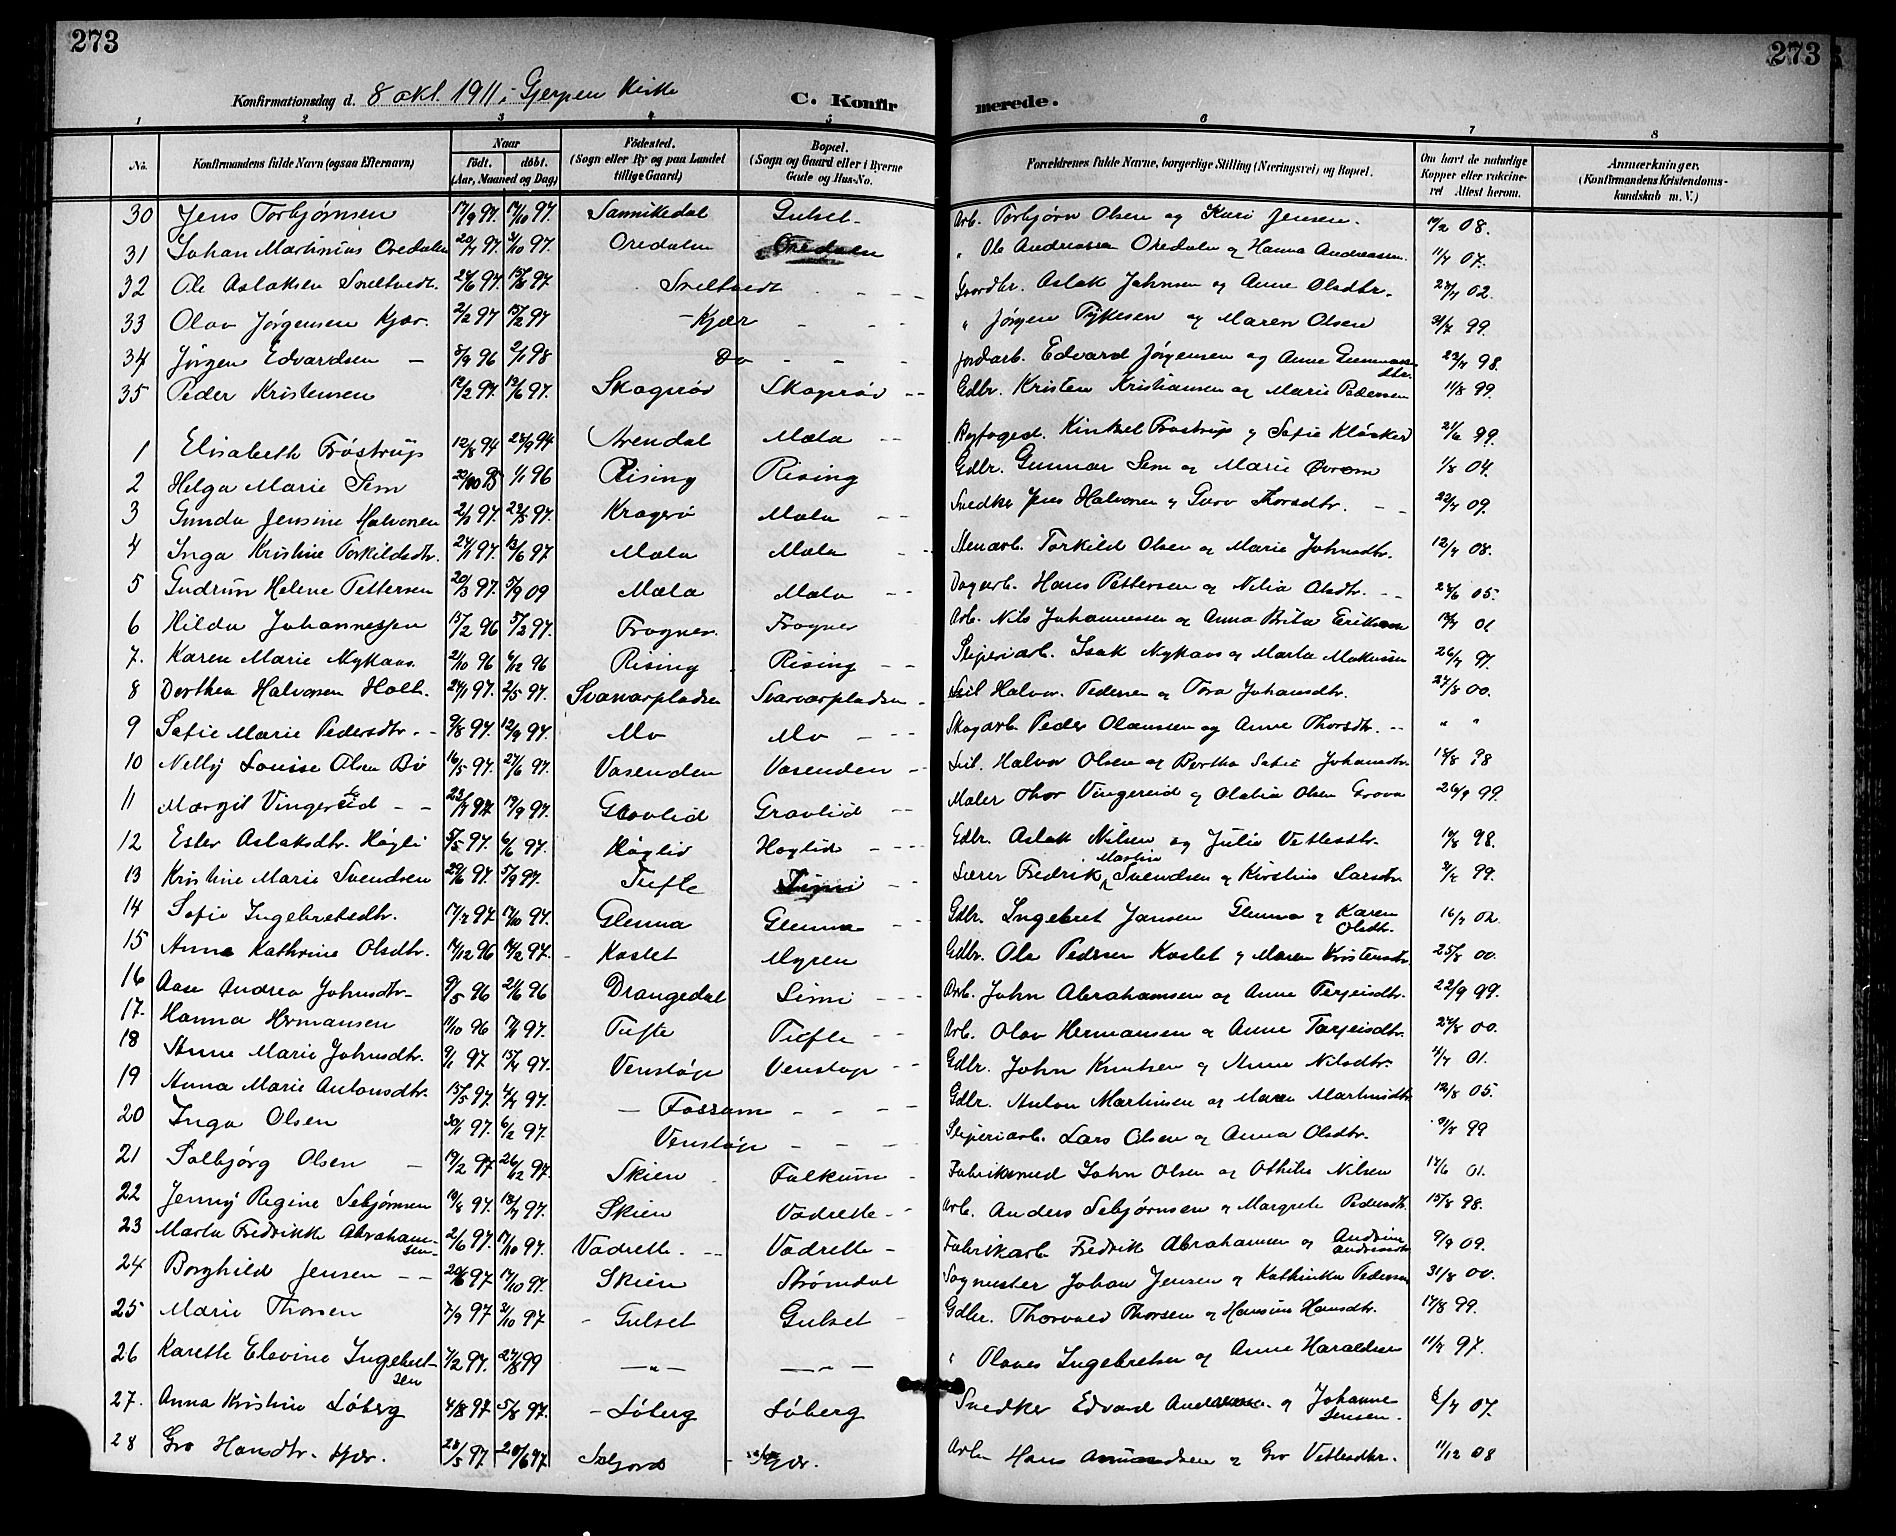 273
273
Konfirmationsdag d. 8 okt. 1911 i Gjerpen Kirke
C. Konfirmerede.
1 2 3 4 5 6 7 8
No. Konfirmandens fulde Navn (ogsaa Efternavn) Naar født. døbt. (Aar, Maaned og Dag) Fødested. (Sogn eller By og paa Landet tillige Gaard) Bopæl. (Sogn og Gaard eller i Byerne Gade og Hus-No. Forældrenes fulde Navne, borgerlige Stilling (Næringsvei) og Bopæl. Om havt de naturlige Kopper eller vakcineret Attest herom. Anmærkninger. (Konfirmandens Kristendomskundskab m. V.)
30 Jens Torbjørnsen 17/9 97. 17/10 97. Sannikedal Gulset Arb. Torbjørn Olsen og Kari Jensen. 08.
31 Johan Martinius Oredalen 97. 97. Oredalen Oredalen " Ole Andreassen Oredalen og Hanna Andreassen. 07.
32 Ole Aslaksen Sneltvedt. 97. 97 Sneltvedt Gaardbr. Aslak Johnsen og Anne Olsdtr. 02.
33 Olav Jørgensen Kjær. 2/2 97 15/2 97 Kjær " Jørgen Tykesen og Maren Olsen 99.
34 Jørgen Edvardsen 96 2/1 98 Do Jordarb. Edvard Jørgensen og Anne 98.
35 Peder Kristensen 12/2 97. 97. Skogerøv Skogerøv Gdbr. Kristen Kristiansen og Marie Pedersen 11/8 99.
1 Elisabeth Frøstrup 12/8 94 94 Arendal Mæla Byfoged. Frøstrup og Sofie 21/6 99.
2 Helga Marie Sem 1/1 96 Rising Rising Gdbr. Gunnar Sem og Marie 1/8 04.
3 Gunda Jensine Halvorsen 97. 97. Kragerø Mæla Snedker Jens Halvorsen og Thorsdtr. 09.
4 Inga Kristine Torkildsdtr. 97. 97 Mæla Mæla Stenarb. Torkild Olsen og Marie Johnsdtr. 08.
5 Gudrun Helene Pettersen 20/3 97. 5/9 09 Mæla Mæla Dagarb. Hans Pettersen og Nilia Olsdtr. 24/6 05.
6 Hilda Johannessen 15/2 96 97. Frogner. Frogner Arb. Nils Johannessen og Anna Brita Eriksen 01
7. Karen Marie Nykaas. 21/10 96 6/12 96 Rising Rising Sliperiarb. Isak Nykaas og Marta 97.
8 Dorthea Halvorsen Holt. 24/1 97. 2/5 97. Svanarpladsen Svanarpladsen Halvor Pedersen og Tora Johansdtr. 00.
9 Sofie Marie Pedersdtr. 9/8 97. 12/9 97. Mo Mo Skogarb. Peder Olaussen og Anne Thorsdtr. " "
10 Nelly Louise Olsen Bø 16/5 97. 27/6 97. Vasenden Vasenden Halvor Olsen og Bertha Sofie Johansdtr. 98
11 Margit Vingereid 97 19/9 97. Gravlid Gravlid Maler Thor Vingereid og Olava Olsen Grova 99.
12 Ester Aslaksdtr. Høgli 97. 97. Høglid Høglid Gdbr. Aslak Nilsen og Julie Vetlesdtr. 98.
13 Kristine Marie Svendsen 97. 5/9 97. Tufte Limi Lærer Fredrik Martin Svendsen og Kirstine Larsdtr. 99.
14 Sofie Ingebretsdtr. 97 97. Glenna Glenna Gdbr. Ingebret Jansen Glenna og Karen Olsdtr. 02.
15 Anna Kathrine Olsdtr. 17/12 96 14/2 97. Kaslet Myren Gdbr. Ole Pedersen Kaslet og Maren Kristensdtr. 25/8 00.
16 Aase Andrea Johnsdtr. 9/5 96 21/6 96 Drangedal Limi Arb. John Abrahamsen og Anne Terjeisdtr. 22/9 99.
17. Hanna Hermansen 1/10 96 97. Tufte Tufte Arb. Olav Hermansen og Anne Tarjeisdtr. 00.
18 Anne Marie Johnsdtr. 9/1 97 97. Venstøp Venstøp Gdbr. John Knutsen og Anne Nilsdtr. 01.
19 Anna Marie Antonsdtr. 15/5 97. 97. Fossum Gdbr. Anton Martinsen og Maren Martinsdtr. 05.
20 Inga Olsen 30/1 97. 6/2 97. Venstøp Sliperiarb. Lars Olsen og Anna Olsdtr. 99
21 Solbjørg Olsen 19/2 97 26/12 97. Skien Falkum Fabriksmed John Olsen og Othilie Nilsen 01.
22 Jenny Regine Sebjørnsen 97. 97. Skien Vadrette Arb. Anders Sebjørnsen og Margrete Pedersdtr. 15/8 98.
23 Marta Fredrikke Abrahamsen 2/6 97. 17/10 97. Vadrette Vadrette Fabrikarb. Fredrik Abrahamsen og Andrine 9/9 09.
24 Borghild Jensen 97 17/10 97. Skien Strømdal Sagmester Johan Jensen og Kathinka Pedersen 31/8 00.
25 Marie Thorsen 7/9 97 31/10 97 Gulset Gulset Gdbr. Thorvald Thorsen og Hansine Hansdtr. 99.
26 Karette Elevine Ingebretsen 7/2 97. 99 " " " Olaves Ingebretsen og Anne Haraldsen 97.
27. Anna Kristine Løberg 4/8 97 5/8 97. Løberg Løberg Snedker Edvard Andreassen og Johanne Jensen. 07.
28 Gro Hansdtr. Kjær. 97. 97 Seljord Kjær. Arb. Hans Amundsen og Gro Vetlesdtr. 11/12 08